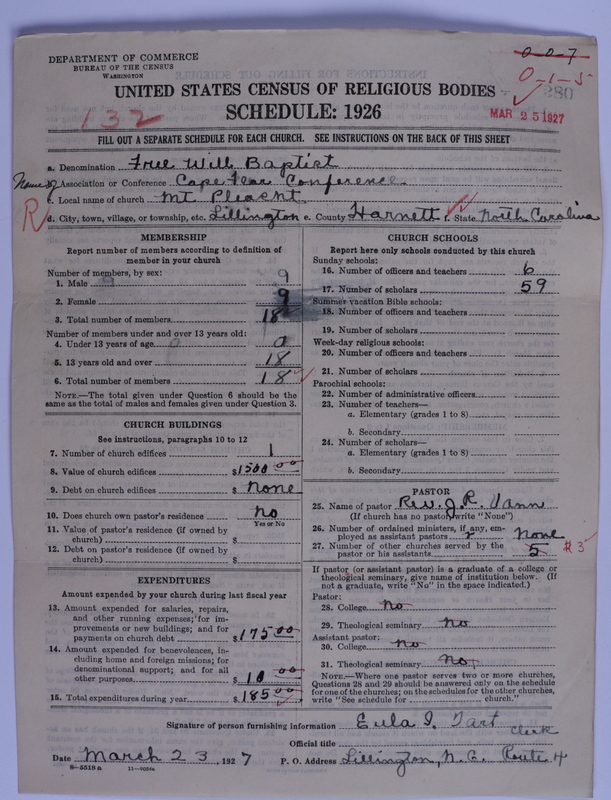 DEPARTMENT OF COMMERCE
BUREAU OF THE CENSUS
WASHINGTON
0-0-7
0-1-5
280
MAR 25 1927
132
UNITED STATES CENSUS OF RELIGIOUS BODIES
SCHEDULE: 1926
FILL OUT A SEPARATE SCHEDULE FOR EACH CHURCH. SEE INSTRUCTIONS ON THE BACK OF THIS SHEET
a. Denomination Free Will Baptist
Name of Association or Conference Cape Fear Conference
c. Local name of church Mt Pleasnt
R
d. City, town, village, or township, etc. Lillington e. County Harnett f. State North Carolina
MEMBERSHIP
Report number of members according to definition of
member in your church
Number of members, by sex:
1. Male 9
2. Female 9
3. Total number of members 18
Number of members under and over 13 years old:
4. Under 13 years of age 0
5. 13 years old and over 18
6. Total number of members 18
NOTE.—The total given under Question 6 should be
same as the total of males and females given under Question 3.
CHURCH BUILDINGS
See instructions, paragraphs 10 to 12
7. Number of church edifices 1
8. Value of church edifices $1500 00
9. Debt on church edifices $ none
10. Does church own pastor's residence no
Yes or No
11. Value of pastor's residence (if owned by
church) $
12. Debt on pastor's residence (if owned by
church) $
EXPENDITURES
Amount expended by your church during last fiscal year
13. Amount expended for salaries, repairs,
and other running expenses; for im-
provements or new buildings; and for
payments on church debt $175 00
14. Amount expended for benevolences, in-
cluding home and foreign missions; for
denominational support; and for all
other purposes $ 10 00
15. Total expenditures during year $185 00
CHURCH SCHOOLS
Report here only schools conducted by this church
Sunday schools:
16. Number of officers and teachers 6
17. Number of scholars 59
Summer vacation Bible schools:
18. Number of officers and teachers
19. Number of scholars
Week-day religious schools:
20. Number of officers and teachers
21. Number of scholars
Parochial schools:
22. Number of administrative officers
23. Number of teachers—
a. Elementary (grades 1 to 8)
b. Secondary
24. Number of scholars—
a. Elementary (grades 1 to 8)
b. Secondary
PASTOR
25. Name of pastor Rev. J. R. Vann
(If church has no pastor, write "None")
26. Number of ordained ministers, if any, em-
ployed as assistant pastors none
27. Number of other churches served by the
pastor or his assistants 5
If pastor (or assistant pastor) is a graduate of a college or
theological seminary, give name of institution below. (If
not a graduate, write "No" in the space indicated.)
Pastor:
28. College no
29. Theological seminary no
Assistant pastor:
30. College no
31. Theological seminary no
NOTE.—Where one pastor serves two or more churches,
Questions 28 and 29 should be answered only on the schedule
for one of the churches; on the schedules for the other churches,
write "See schedule for church."
Signature of person furnishing information Eula I. Tart
Official title Clerk
Date March 23, 1927 P. O. Address Lillington, N. C. Route 4
8—5518 a 11—9024a